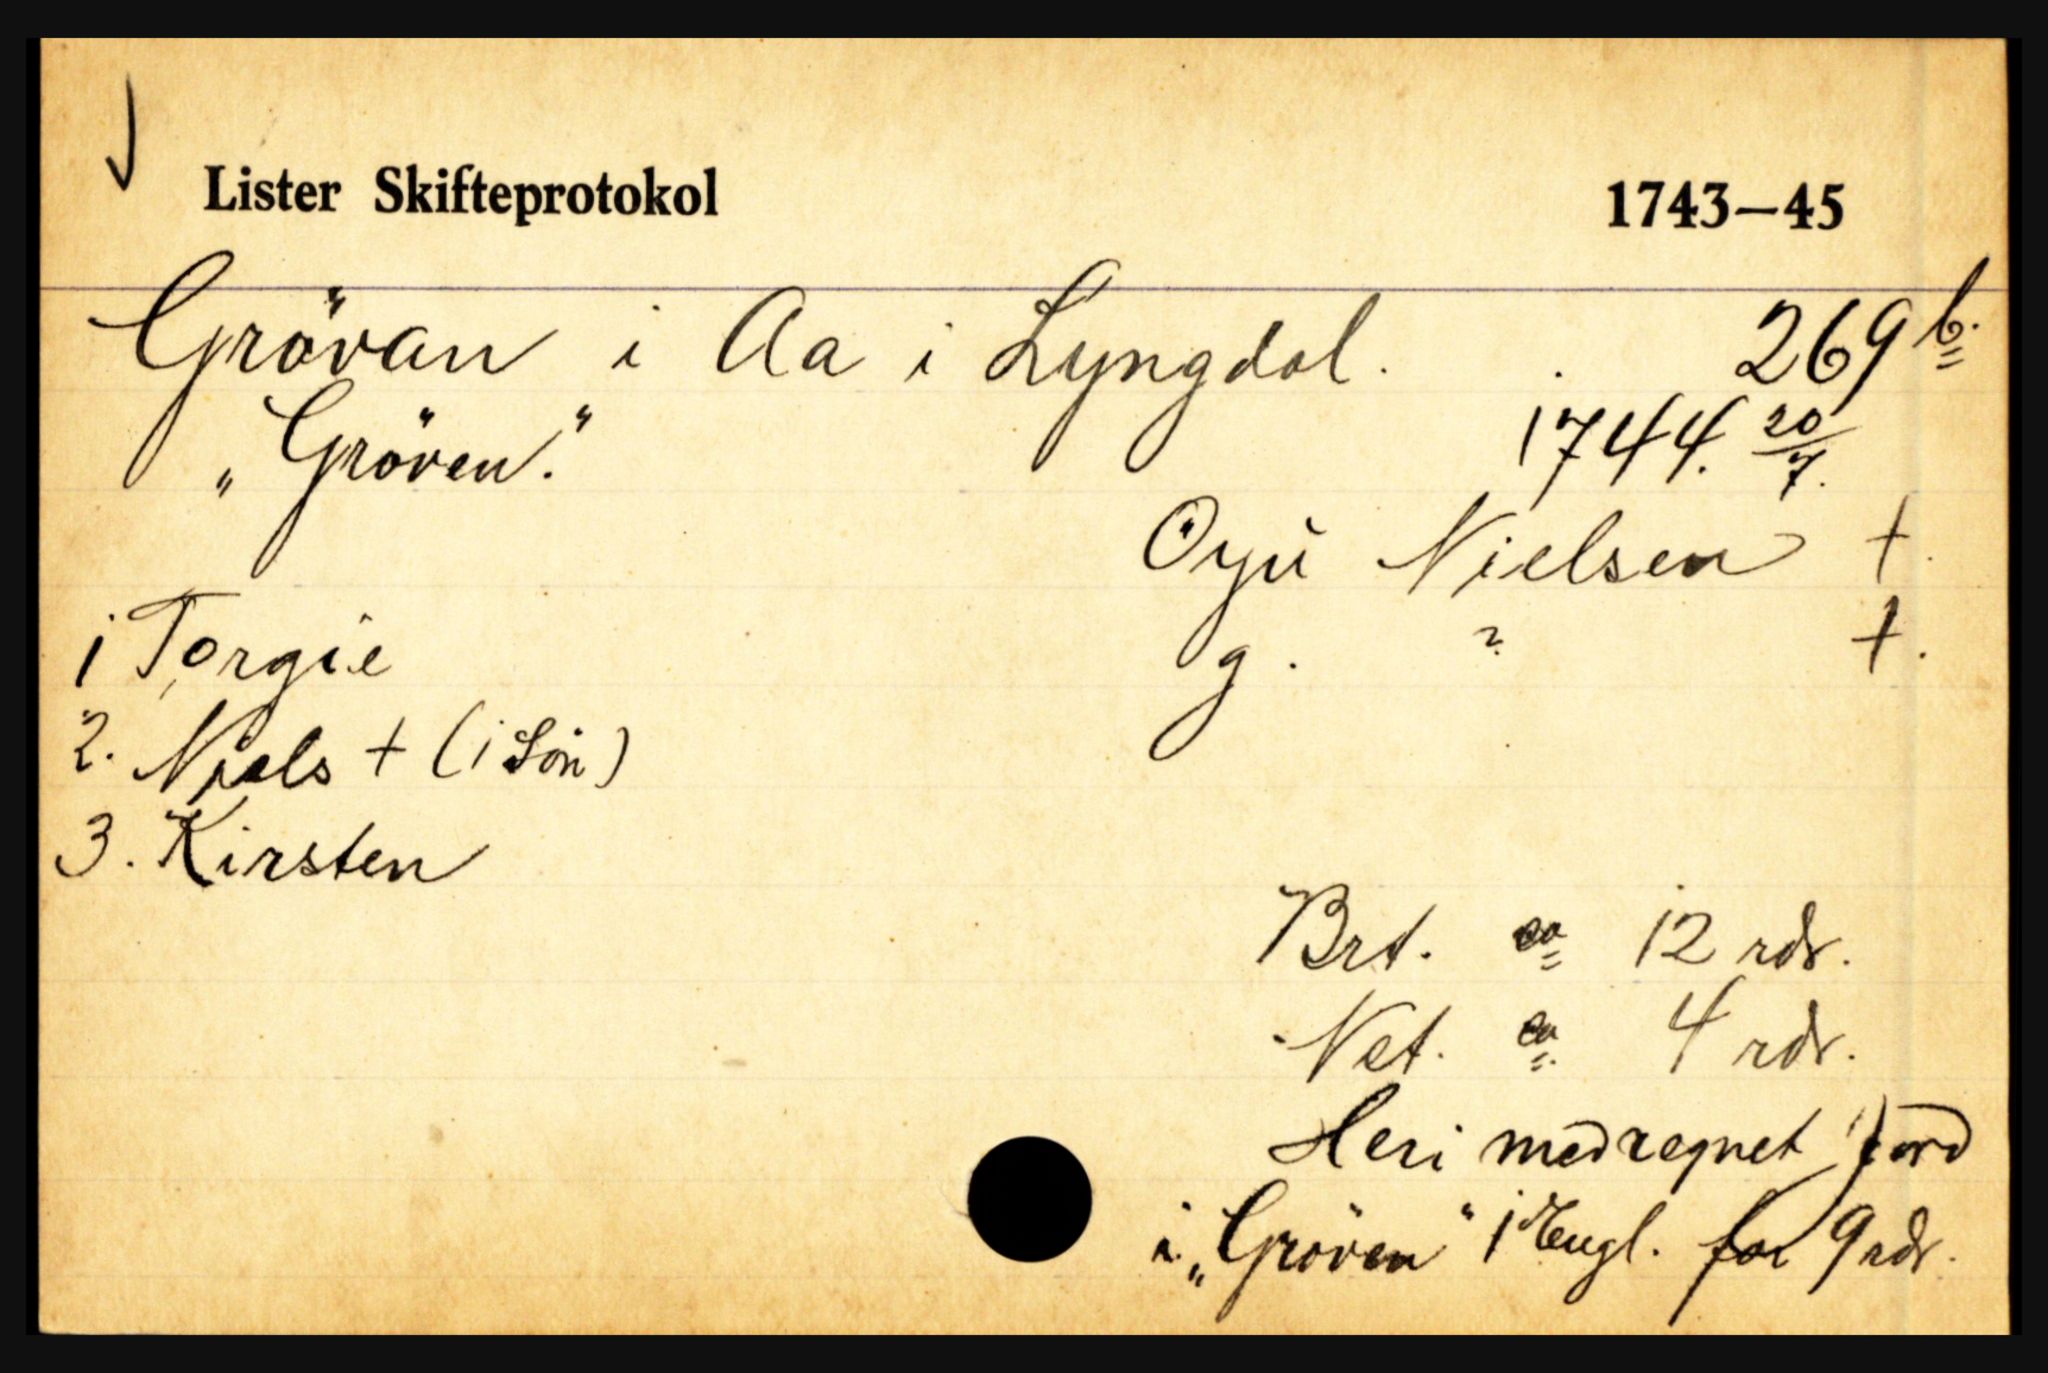 Lister Skifteprotokol 1743—45
Grövan i Aa i Lyngdal. 269 b.
"Gröven." 1744. 20/7.
Öyü Nielsen +.
1 Torgie g. ? +.
2. Niels + (1 Sön)
3. Kirsten
Brt. ca 12 rdr.
Net. ca. 4 rdr.
Heri medregnet Jord
i "Gröven" 1 Engl. for 9 rdr.